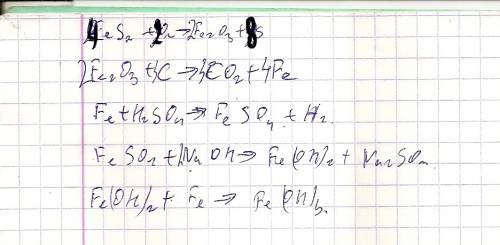 4FeS2 + O2 → 2Fe2O3 + 8S
2Fe2O3 + 3C → 3CO2 + 4Fe
Fe + H2SO4 → FeSO4 + H2
FeSO4 + 2NaOH → Fe(OH)2 + Na2SO4
Fe(OH)2 + Fe → Fe(OH)3